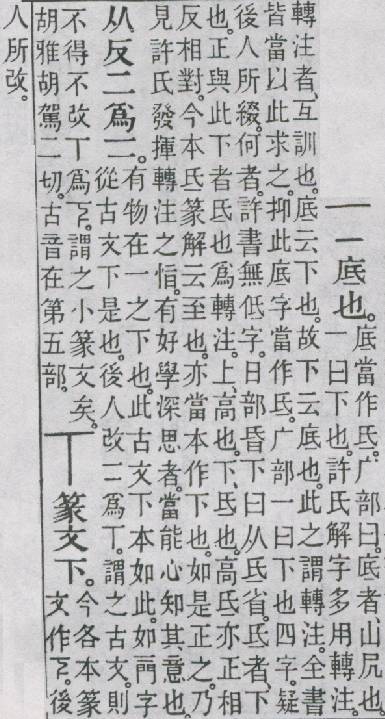 二底也。
底當作氐。广部曰。底者、山凥也。
一曰下也。許氏解字多用轉注。
轉注者、互訓也。底云下也。故下云底也。此之謂轉注。全書
皆當以此求之。抑此底字當作氐。广部一曰下也四字、疑
後人所綴。何者。許書無低字。日部昏下曰从氐省。氐者、下
也。正與此下者氐也爲轉注。上、高也。下、氐也。高氐亦正相
反相對。今本氐篆解云至也。亦當本作下也。如是正之。乃
見許氏發揮轉注之恉。有好學深思者。當能心知其意也。
从反二爲二。
有物在一之下也。此古文下本如此。如字
從古文下是也。後人改二爲丅。謂之古文。則
不得不改丅爲𠄟。謂之小篆文矣。
胡雅胡駕二切。古音在第五部。
丅篆文下。
今各本篆
文作𠄟。後
人所改。